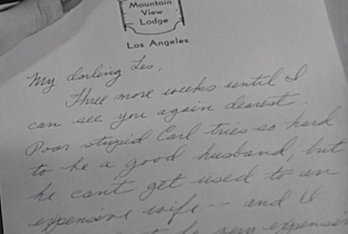 Mountain
View
Lodge
Los Angeles
My darling Les,
Three more weeks until I
can see you again dearest.
Poor stupid Carl tries so hard
to be a good husband, but
he can't get used to an
expensive wife -- and I
expensive